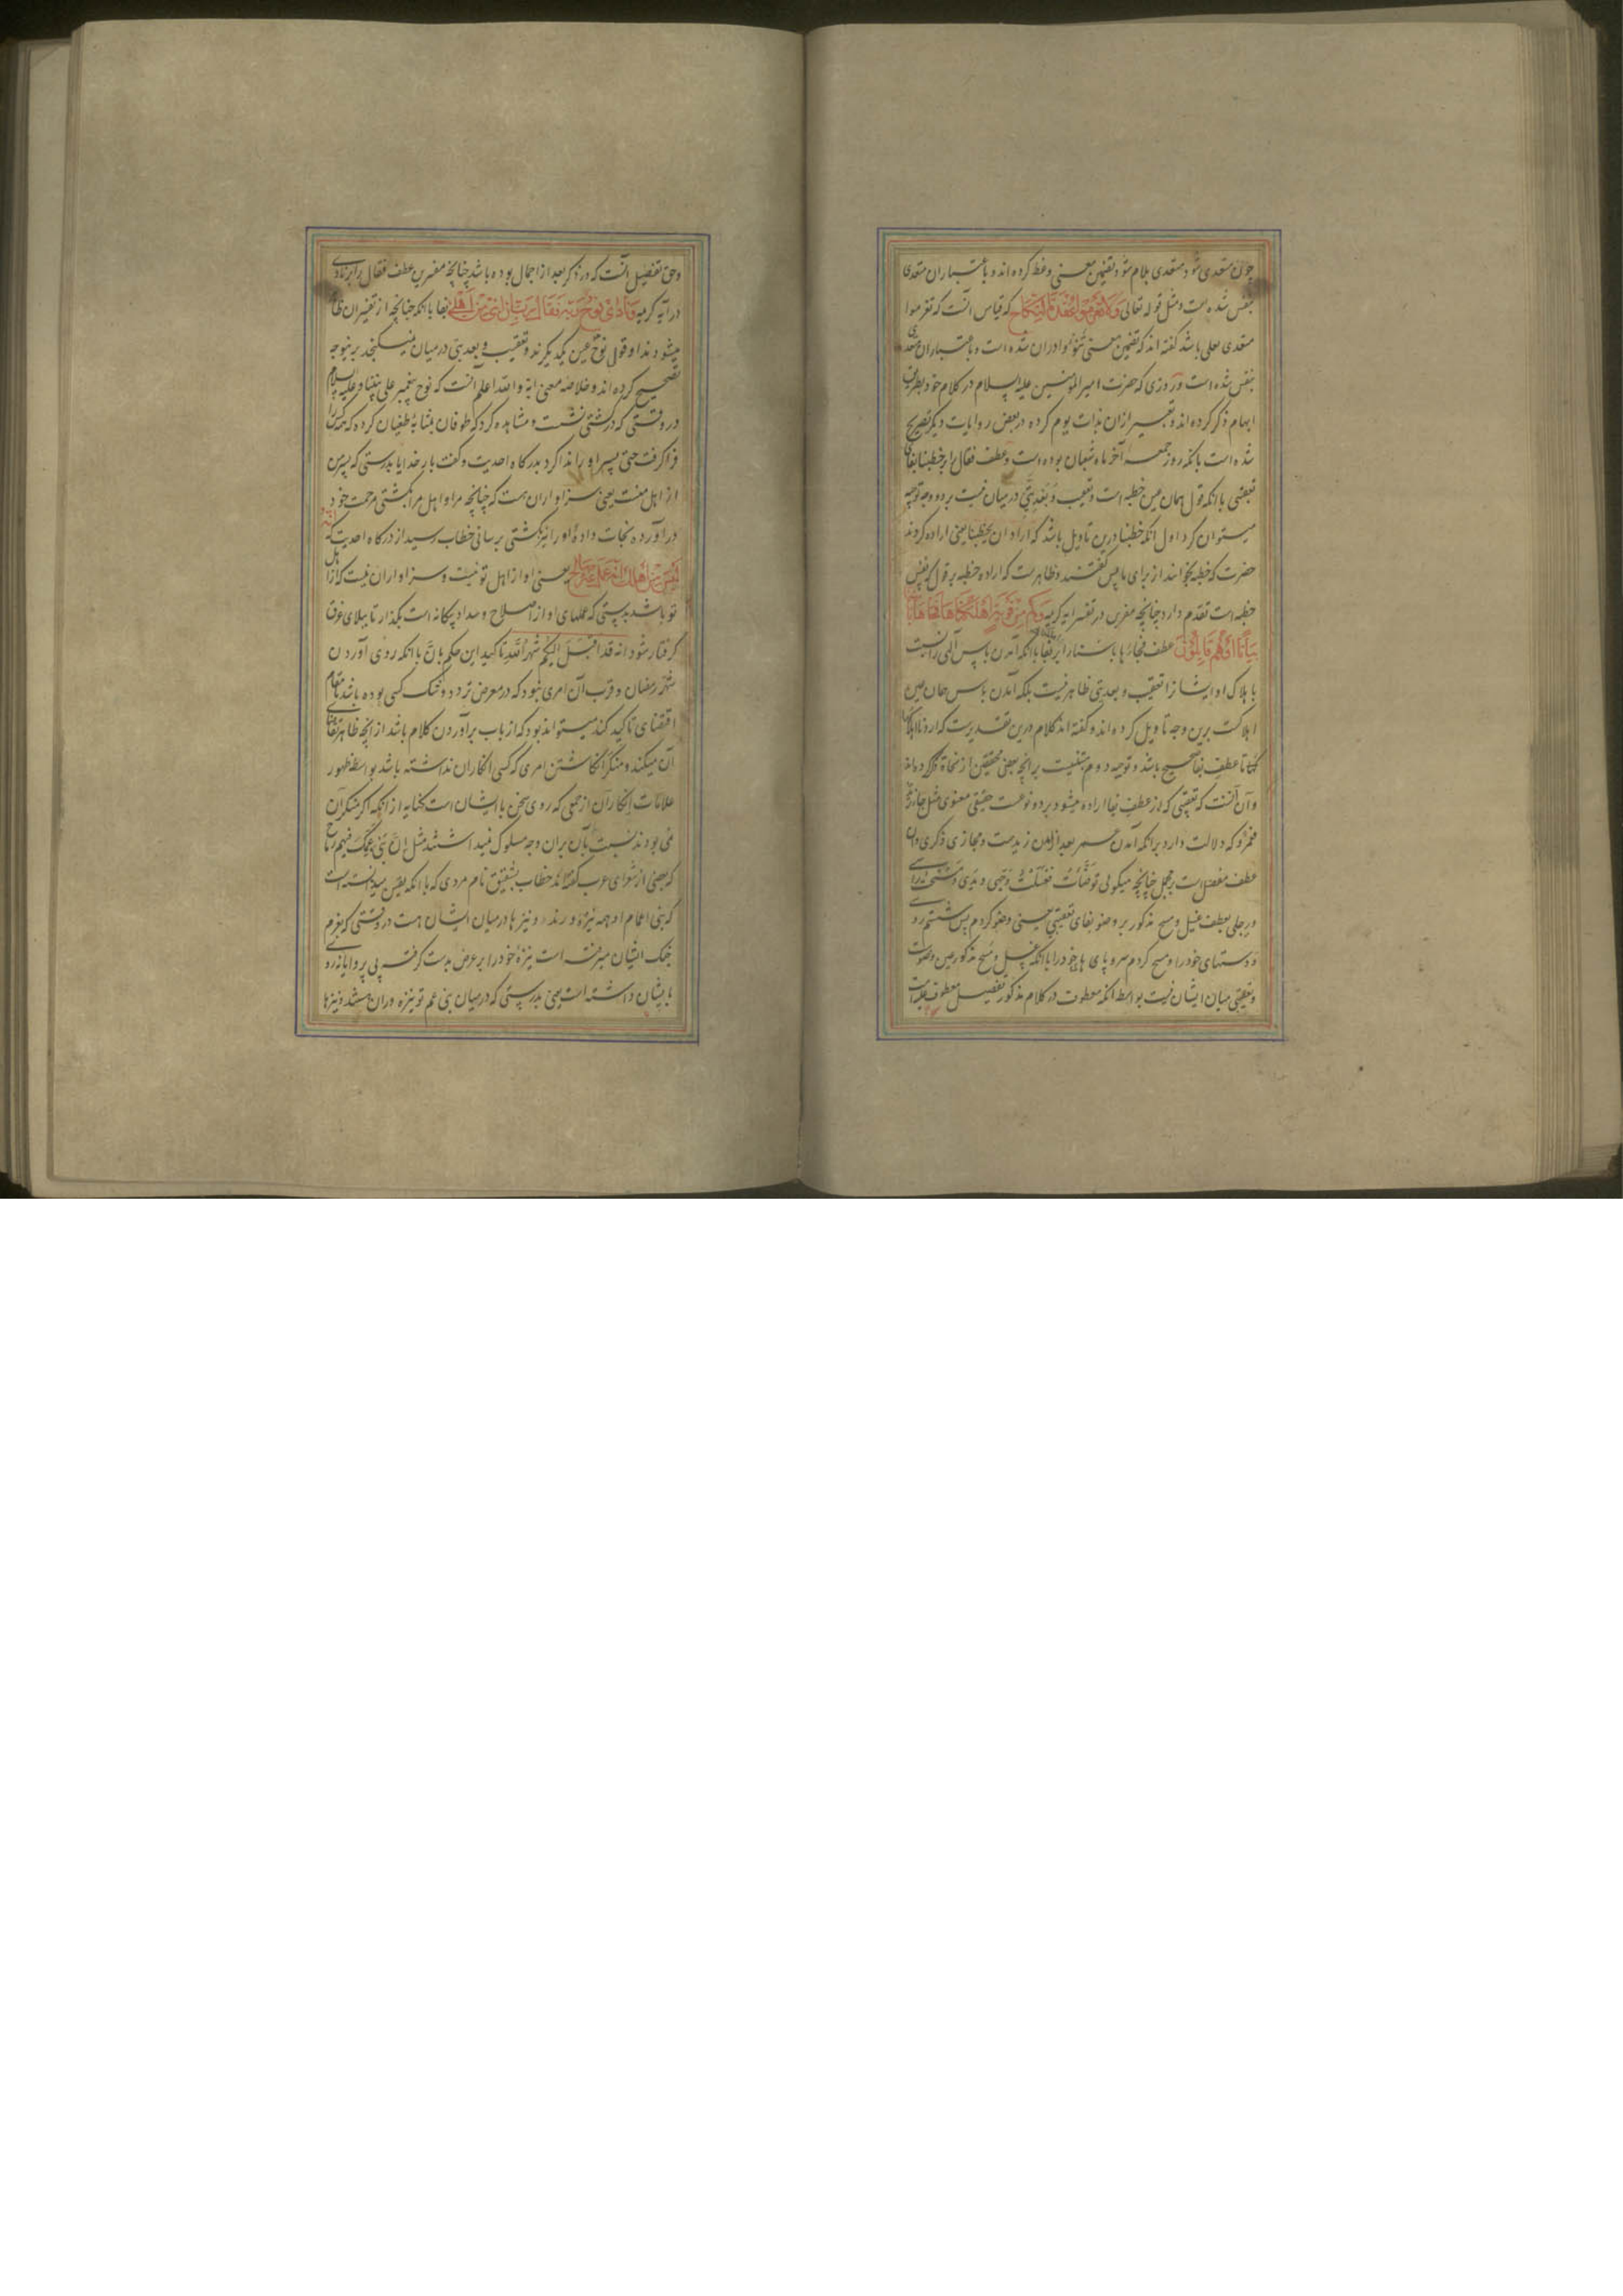 چون متعدی شود متعدی بلام شود تضمین معنی وعظ کرده اند و باعتبار ان متعدی
بنفس شده است و مثل قوله تعالی وَلَا تَعْزِمُوا عُقْدَةَ النِّكَاحِ که قیاس آنست که تعزموا
متعدی بعلی باشد گفته اند که تضمین معنی تَنْوُوا در ان شده است و باعتبار ان متعدی
بنفس شده است و روزی که حضرت امیر المؤمنین علیه السلام در کلام خود بطریق
ابهام ذکر کرده اند و تعبیر از ان بذات یوم کرده در بعض روایات دیگر تصریح
شده است بانکه روز جمعه آخر ماه شعبان بوده است و عطف فقال بر خطبنا بفای
تعقیبی با انکه قول همان عین خطبه است و تعقیب و بَعْدِیَّتی در میان نیست بر دو وجه توجیه
میتوان کرد اول انکه خطبنا درین تاویل باشد که اراد ان یخطبنا یعنی اراده کردند
حضرت که خطبه بخوانند از برای ما پس گفتند و ظاهرست که اراده خطبه بر قول که نفس
خطبه است تقدم دارد چنانچه مفسرین در تفسیر ایه کریمه وَكَمْ مِنْ قَرْيَةٍ أَهْلَكْنَاهَا فَجَاءَهَا بَأْسُنَا
بَيَاتًا أَوْ هُمْ قَائِلُونَ عطف فجاءها باسنا را بر بفا با انکه آمدن باس الهی را نسبت
با هلاک او ایشانرا تعقیب و بعدیتی ظاهر نیست بلکه آمدن باس همان عین
اهلاکست برین وجه تاویل کرده اند و گفته اند کلام درین تقدیرست که اردنا اهلاکها
تا عطف بفا صحیح باشد و توجیه دوم مبتنیست برانچه بعضی محققین از نحاة ذکر کرده اند
و آن آنست که تعقیبی که از عطف بفا اراده میشود بر دو نوعست حقیقی معنوی مثل جاء زید
فعمرو که دلالت دارد برانکه آمدن عمرو بعد از آمدن زیدست و مجازی ذکری و ان
عطف مفصل است بر مجمل چنانچه میگویی توضّأتُ فغسلتُ وجهی و یدی و مسحتُ راسی
و رجلی بعطف غسل و مسح مذکور بر وضو بفای تعقیبی یعنی وضو کردم پس شستم رو
و دستهای خود را و مسح کردم سر و پای های خود را با انکه غسل و مسح مذکور عین وضوست
و تعقیبی میان ایشان نیست بواسطه انکه معطوف در کلام مذکور تفصیل معطوف علیه است
وحق تفضیل آنست که در ذکر بعد از اجمال بوده باشد چنانچه مفسرین عطف فقال را بر نادی
در آیه کریمه وَنَادَىٰ نُوحٌ رَبَّهُ فَقَالَ رَبِّ إِنَّ ابْنِي مِنْ أَهْلِي بفا با انکه چنانچه از تفسیر ان ظاهر
میشود ندا و قول نوح عین یکدیگرند و تعقیب و بعدیتی در میان نمیگنجد برینوجه
تصحیح کرده اند و خلاصه معنی ایه و الله اعلم انست که نوح پیغمبر علی نبینا و علیه السلام
در وقتی که در کشتی نشست و مشاهده کرد که طوفان بمثابه طغیان کرده که همه کس را
فرا گرفت حتی پسر او را ندا کرد بدرگاه احدیت و گفت بار خدایا بدرستی که پسر من
از اهل منست یعنی سزاوار ان هست که چنانچه مرا و اهل مرا بکشتی مرحمت خود
در آورده نجات دادهٔ او را نیز بکشتی برسانی خطاب رسید از درگاه احدیت که إِنَّهُ
لَيْسَ مِنْ أَهْلِكَ إِنَّهُ عَمَلٌ غَيْرُ صَالِحٍ یعنی او از اهل تو نیست و سزاوار ان نیست که از اهل
تو باشد بدرستی که عملهای او از صلاح و سداد بیگانه است بگذار تا ببلای غرق
گرفتار شود انه قد اقبل الیکم شهر الله تاکید این حکم بانَّ با انکه روی آوردن
شهر رمضان و قرب آن امری نبود که در معرض تردد و شک کسی بوده باشد تا مقام
اقتضای تاکید کند میتواند بود که از باب برآوردن کلام باشد از انچه ظاهر تقاضای
آن میکند و منکَر انگاشتن امری که کسی انکار ان نداشته باشد بواسطه ظهور
علامات انکار آن از جمعی که روی سخن با ایشان است کنایه از انکه اگر منکر آن
می بودند نسبت بآن بران وجه سلوک مینداشتند مثل إنَّ بنی عمِّک فیهم رماح
که بعضی از شعرای عرب گفته اند خطاب بشقیق نام مردی که با انکه یقین میدانسته است
که بنی اعمام او همه نیزه ورند و نیزها در میان ایشان هست در وقتی که بعزم
جنگ ایشان میرفته است نیزهٔ خود را بر عرض بدست گرفته بی پروایانه رو
بایشان داشته است یعنی بدرستی که در میان بنی عم تو نیزه وران هستند و نیزها